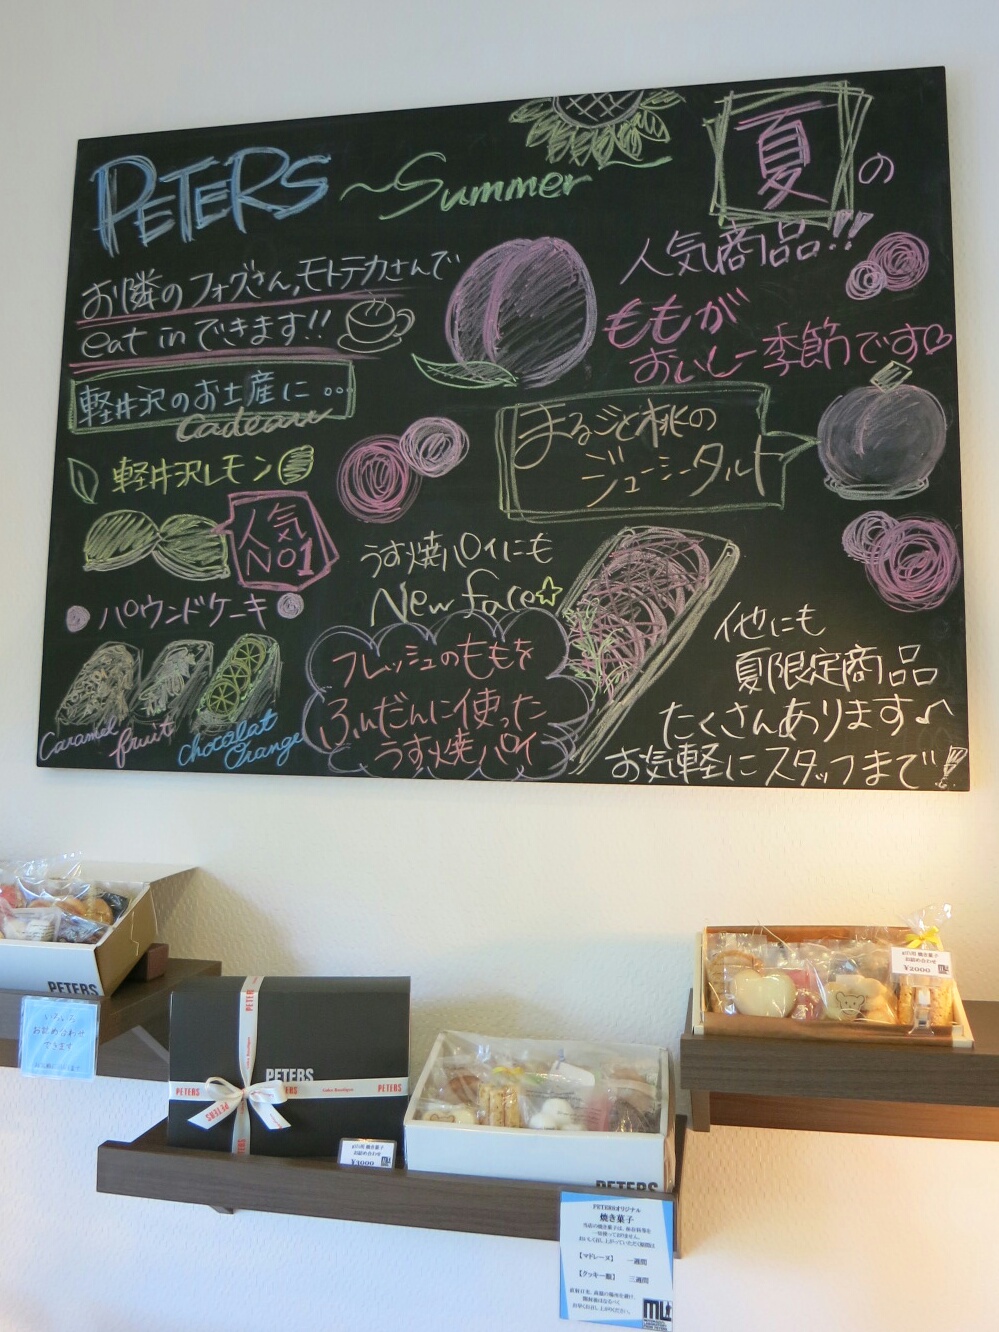 PETERS ~Summer
お隣のフォグさん,モトテカさんで
eat in できます!!
軽井沢のお土産に…
cadeau
軽井沢レモン
人気
No1
パウンドケーキ
Caramel
fruit
chocolat
Orange
うす焼パイにも
New face☆
フレッシュのももを
ふんだんに使った
うす焼パイ
夏の
人気商品!!
ももが
おいしー季節です♡
まるごと桃の
ジューシータルト
他にも
夏限定商品
たくさんあります♪
お気軽にスタッフまで!
PETERS
お詰め合わせ
できます
PETERS
PETERS
PETERS
PETERS
PETERS
PETERS
焼き菓子
お詰め合わせ
PETERS
焼菓子
お詰め合わせ
¥2000
PETERSオリジナル
焼き菓子
【マドレーヌ】 一週間
【クッキー類】 三週間